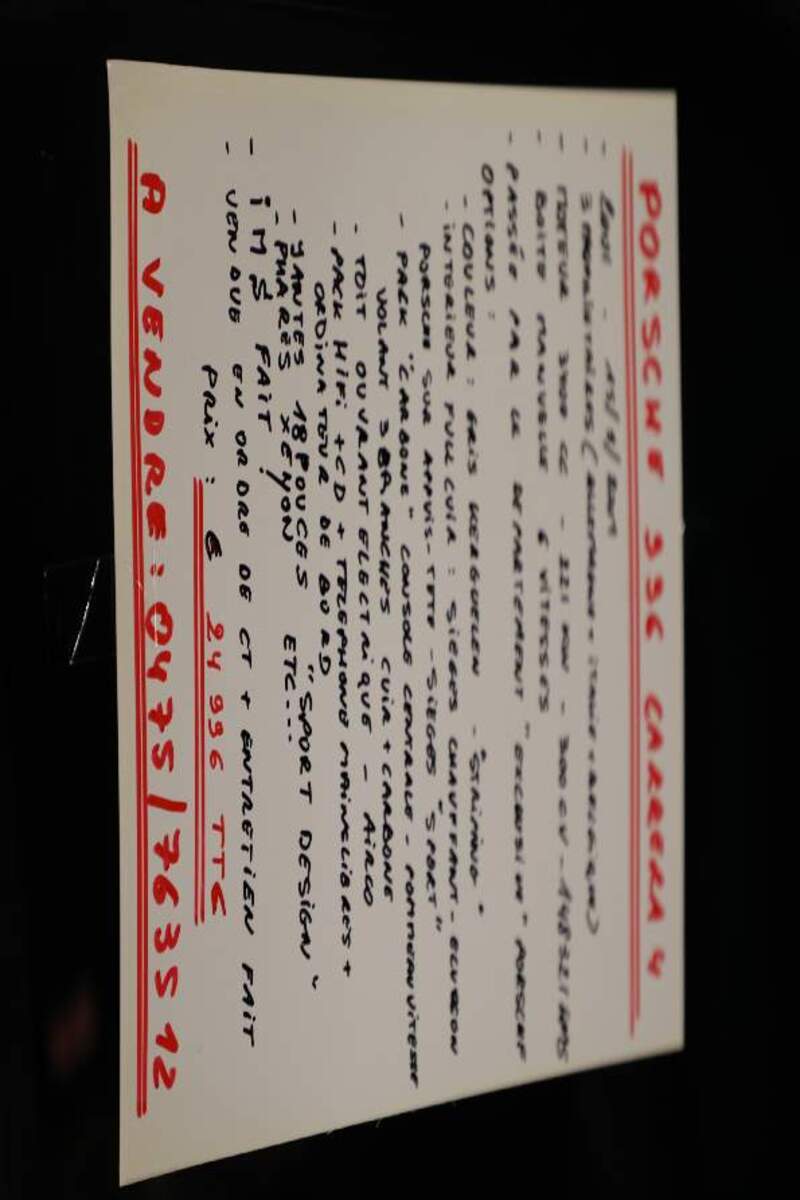 PORSCHE 996 CARRERA 4
- 2001 - 15/1/2001
- 3 PROPRIÉTAIRES (ALLEMAGNE + ITALIE + BELGIQUE)
- MOTEUR 3400 CC - 221 KW - 300 CV - 148321 KMS
- BOITE MANUELLE 6 VITESSES
- PASSÉE PAR LE DEPARTEMENT "EXCLUSIVE" PORSCHE
OPTIONS :
- COULEUR : GRIS KERGUELEN - "STRIPING"
- INTERIEUR FULL CUIR : SIEGES CHAUFFANT - ECUSSON
PORSCHE SUR APPUIS-TETE - SIEGES "SPORT"
- PACK "CARBONE" CONSOLE CENTRALE - POMMEAU VITESSE
VOLANT 3 BRANCHES CUIR + CARBONE
- TOIT OUVRANT ELECTRIQUE - AIRCO
- PACK HIFI + CD + TELEPHONE MAINS LIBRES +
ORDINATEUR DE BORD
- JANTES 18 POUCES "SPORT DESIGN"
- PHARES XENON ETC...
- IMS FAIT !
- VENDUE EN ORDRE DE CT + ENTRETIEN FAIT
PRIX : € 24 996 TTC
A VENDRE : 0475/763512